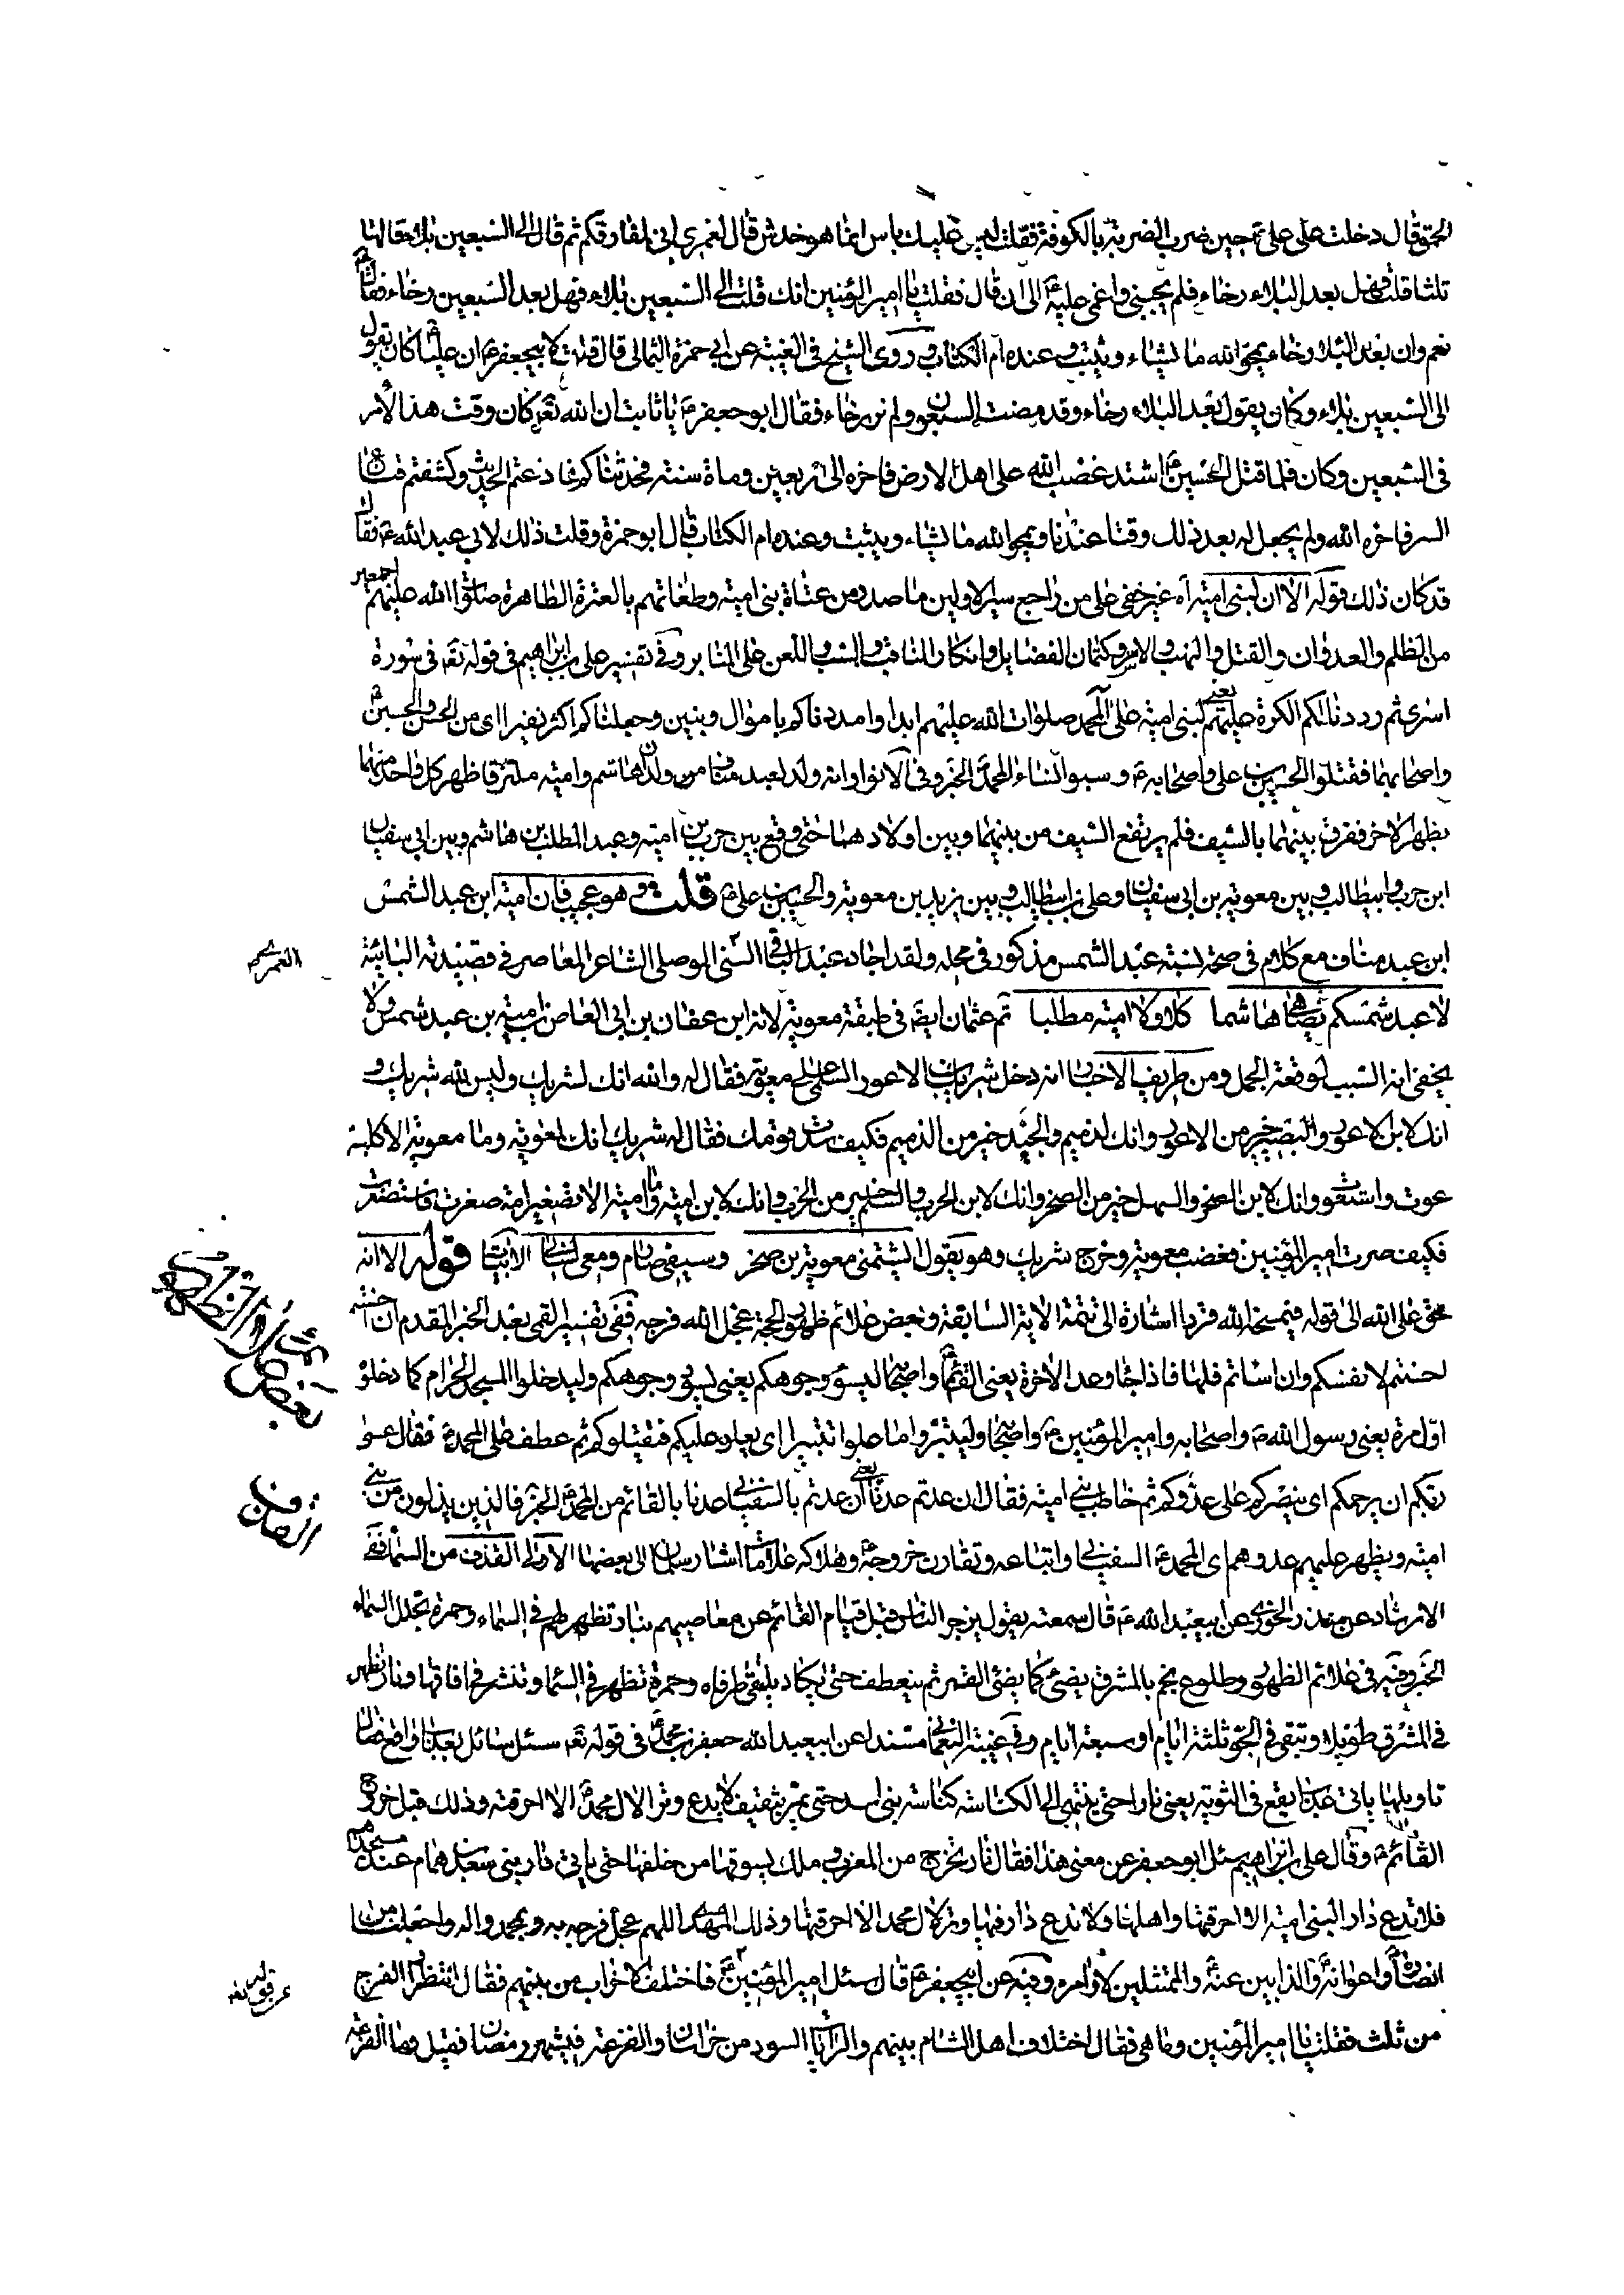 الحمق قال دخلت على علی ع حين ضرب الضربة بالكوفة فقلت ليس عليك باس انما هو خدش قال لعمري اني لمفارقكم ثم قال الى السبعين بلاء قالها
ثلثا قلت فهل بعد البلاء رخاء فلم يجبني واغمي عليه الى ان قال فقلت يا امير المؤمنين انك قلت الى السبعين بلاء فهل بعد السبعين رخاء فقال
نعم وان بعد البلاء رخاء يمحو الله ما يشاء ويثبت وعنده ام الكتاب وروى الشيخ في الغيبة عن ابي حمزة الثمالي قال قلت لابيجعفر ع ان عليا كان يقول
الى السبعين بلاء وكان يقول بعد البلاء رخاء وقد مضت السبعون ولم نر رخاء فقال ابو جعفر ع يا ثابت ان الله تع كان وقت هذا الامر
في السبعين وكان فلما قتل الحسين ع اشتد غضب الله على اهل الارض فاخره الى اربعين وماة سنة فحدثناكم فاذعتم الحديث وكشفتم قناع
السر فاخره الله ولم يجعل له بعد ذلك وقتا عندنا ويمحو الله ما يشاء ويثبت وعنده ام الكتاب قال ابو حمزة وقلت ذلك لابي عبد الله ع فقال
قد كان ذلك قوله الا ان لبني امية آه غير خفي على من راجع سير الاولين ما صدر من عتاة بني امية وطغاتهم بالعترة الطاهرة صلوات الله عليهم اجمعين
من الظلم والعدوان والقتل والنهب والاسر وكتمان الفضايل وانكار المناقب والسب واللعن على المنابر وفي تفسير علي بن ابراهيم في قوله تع في سورة
اسرى ثم رددنا لكم الكرة عليهم يعني لبني امية على ال محمد صلوات الله عليهم ابدا وامددناكم باموال وبنين وجعلناكم اكثر نفيرا اى من الحسن والحسين
واصحابهما فقتلوا الحسين بن علی واصحابه ع وسبوا نساء ال محمد الخبر وفي الانوار انه ولد لعبد مناف ولدان هاشم وامية ملتزقا ظهر كل واحد منهما
بظهر الاخر ففرق بينهما بالسيف فلم يرتفع السيف من بينهما وبين اولادهما حتى وقع بين حرب بن امية وعبد المطلب بن هاشم وبين ابي سفيان
ابن حرب وابيطالب وبين معوية بن ابي سفيان وعلي بن ابيطالب وبين يزيد بن معوية والحسين بن علی ع قلت وهو عجيب فان امية ابن عبد الشمس
ابن عبد مناف مع كلام في صحة نسبة عبد الشمس مذكور في محله ولقد اجاد عبد الباقي السني الموصلي الشاعر المعاصر في قصيدته البائية
العمري
لا عبد شمسكم يضاهي هاشما كلا ولا امية مطلبا ثم عثمان ايض في طبقة معوية لانه ابن عفان بن ابي العاص بن امية بن عبد شمس ولا
يخفى انه السبب لوقعة الجمل ومن طريف الاخبار انه دخل شريك بن الاعور السلمي على معوية فقال له والله انك لشريك وليس لله شريك و
انك لابن الاعور والبصير خير من الاعور وانك لذميم والجيد خير من الذميم فكيف سدت قومك فقال له شريك انك لمعوية وما معوية الا كلبة
عوت واستعوت وانك لابن الصخر والسهل خير من الصخر وانك لابن الحرب والسلم خير من الحرب وانك لابن امية وما امية الا تصغير امة صغرت فاستصغرت
فكيف صرت امير المؤمنين فغضب معوية وخرج شريك وهو يقول ايشتمني معوية بن صخر وسيفي صارم ومعي لساني الابيات قوله الا انه
حق على الله الى قوله فيمسخه الله قردا اشارة الى تتمة الاية السابقة وبعض علائم ظهور الحجة عجل الله فرجه ففي تفسير القمي بعد الخبر المقدم ان احسنتم
احسنتم لانفسكم وان اساتم فلها فاذا جاء وعد الاخرة يعني القائم واصحابه ليسوؤ وجوهكم يعني يسود وجوهكم وليدخلوا المسجد الحرام كما دخلوه
بعض علائم الظهور
اول مرة يعني رسول الله ص واصحابه وامير المؤمنين ع واصحابه وليتبروا ما علوا تتبيرا اى يعلوا عليكم فيقتلوكم ثم عطف على ال محمد ع فقال عسى
ربكم ان يرحمكم اى ينصركم على عدوكم ثم خاطب بني امية فقال ان عدتم عدنا يعني ان عدتم بالسفياني عدنا بالقائم من ال محمد الخبر فالذين يذلون من بني
القذف
امية ويظهر عليهم عدوهم اى ال محمد ع السفياني واتباعه وتقارن خروجه وهلاكه علامات اشار الى بعضها الاولى القذف من السماء ففي
الارشاد عن منذر الخوزي عن ابيعبد الله ع قال سمعته يقول يزجر الناس قبل قيام القائم عن معاصيهم بنار تظهر لهم في السماء وحمرة تجلل السماء
الخبر وفيه في علائم الظهور وطلوع نجم بالمشرق يضئ كما يضئ القمر ثم ينعطف حتى يكاد يلتقي طرفاه وحمرة تظهر في السماء وتنشر في افاقها ونار تظهر
في المشرق طويلا وتبقى في الجو ثلثة ايام او سبعة ايام وفي غيبة النعماني مسندا عن ابيعبد الله جعفر بن محمد ع في قوله تع سئل سائل بعذاب واقع قال
تاويلها ياتي عذاب يقع في الثوية يعني نارا حتى ينتهي الى الكناسة كناسة بني اسد حتى يمر بثقيف لا يدع وترا لال محمد الا احرقته وذلك قبل خروج
القائم ع وقال علي بن ابراهيم سئل ابو جعفر عن معنى هذا فقال نار يخرج من المغرب وملك يسوقها من خلفها حتى ياتي دار بني سعد بن همام عند مسجدهم
فلا تدع دارا لبني امية الا احرقتها واهلها ولا تدع دارا فيها وتر لال محمد الا احرقتها وذلك المهدي اللهم عجل فرجه به وبمحمد واله واجعلنا من
انصاره واعوانه والذابين عنه والممتثلين لاوامره وفيه عن ابيجعفر ع قال سئل امير المؤمنين ع فاختلف الاحزاب من بينهم فقال انتظروا الفرج
عن قوله تع
من ثلث فقلت يا امير المؤمنين وما هي فقال اختلاف اهل الشام بينهم والرايات السود من خراسان والفزعة في شهر رمضان فقيل وما الفزعة